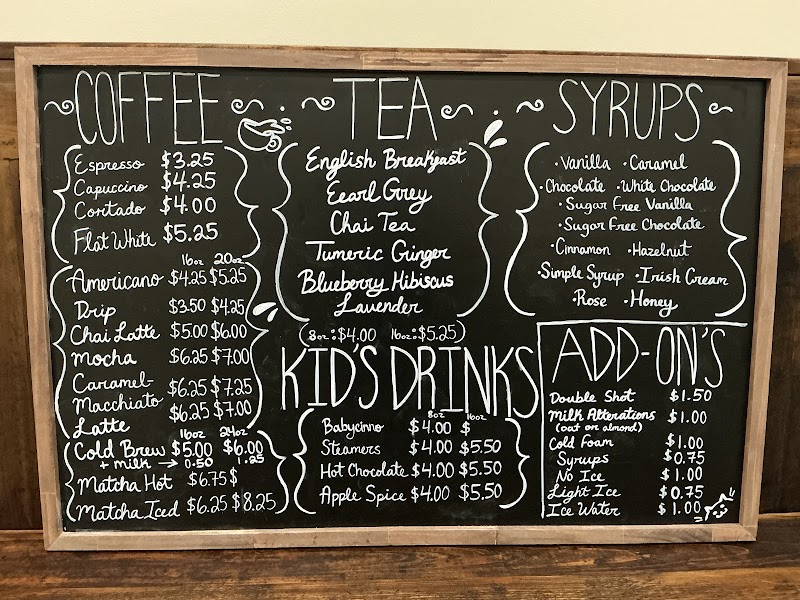 COFFEE
Espresso $3.25
Capuccino $4.25
Cortado $4.00
Flat White $5.25
16oz 20oz
Americano $4.25 $5.25
Drip $3.50 $4.25
Chai Latte $5.00 $6.00
Mocha $6.25 $7.00
Caramel-
Macchiato $6.25 $7.25
Latte $6.25 $7.00
16oz 24oz
Cold Brew $5.00 $6.00
+ milk → 0.50 1.25
Matcha Hot $6.75 $
Matcha Iced $6.25 $8.25
TEA
English Breakfast
Eearl Grey
Chai Tea
Tumeric Ginger
Blueberry Hibiscus
Lavender
(8oz: $4.00 16oz: $5.25)
KID'S DRINKS
8oz 16oz
Babycinno $4.00 $
Steamers $4.00 $5.50
Hot Chocolate $4.00 $5.50
Apple Spice $4.00 $5.50
SYRUPS
·Vanilla ·Caramel
·Chocolate ·White Chocolate
·Sugar Free Vanilla
·Sugar Free Chocolate
·Cinnamon ·Hazelnut
·Simple Syrup ·Irish Cream
·Rose ·Honey
ADD-ON'S
Double Shot $1.50
Milk Alterations $1.00
(oat or almond)
Cold Foam $1.00
Syrups $0.75
No Ice $1.00
Light Ice $0.75
Ice Water $1.00